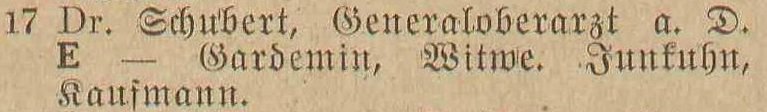 17 Dr. Schubert, Generaloberarzt a. D.
E — Gardemin, Witwe. Junkuhn,
Kaufmann.